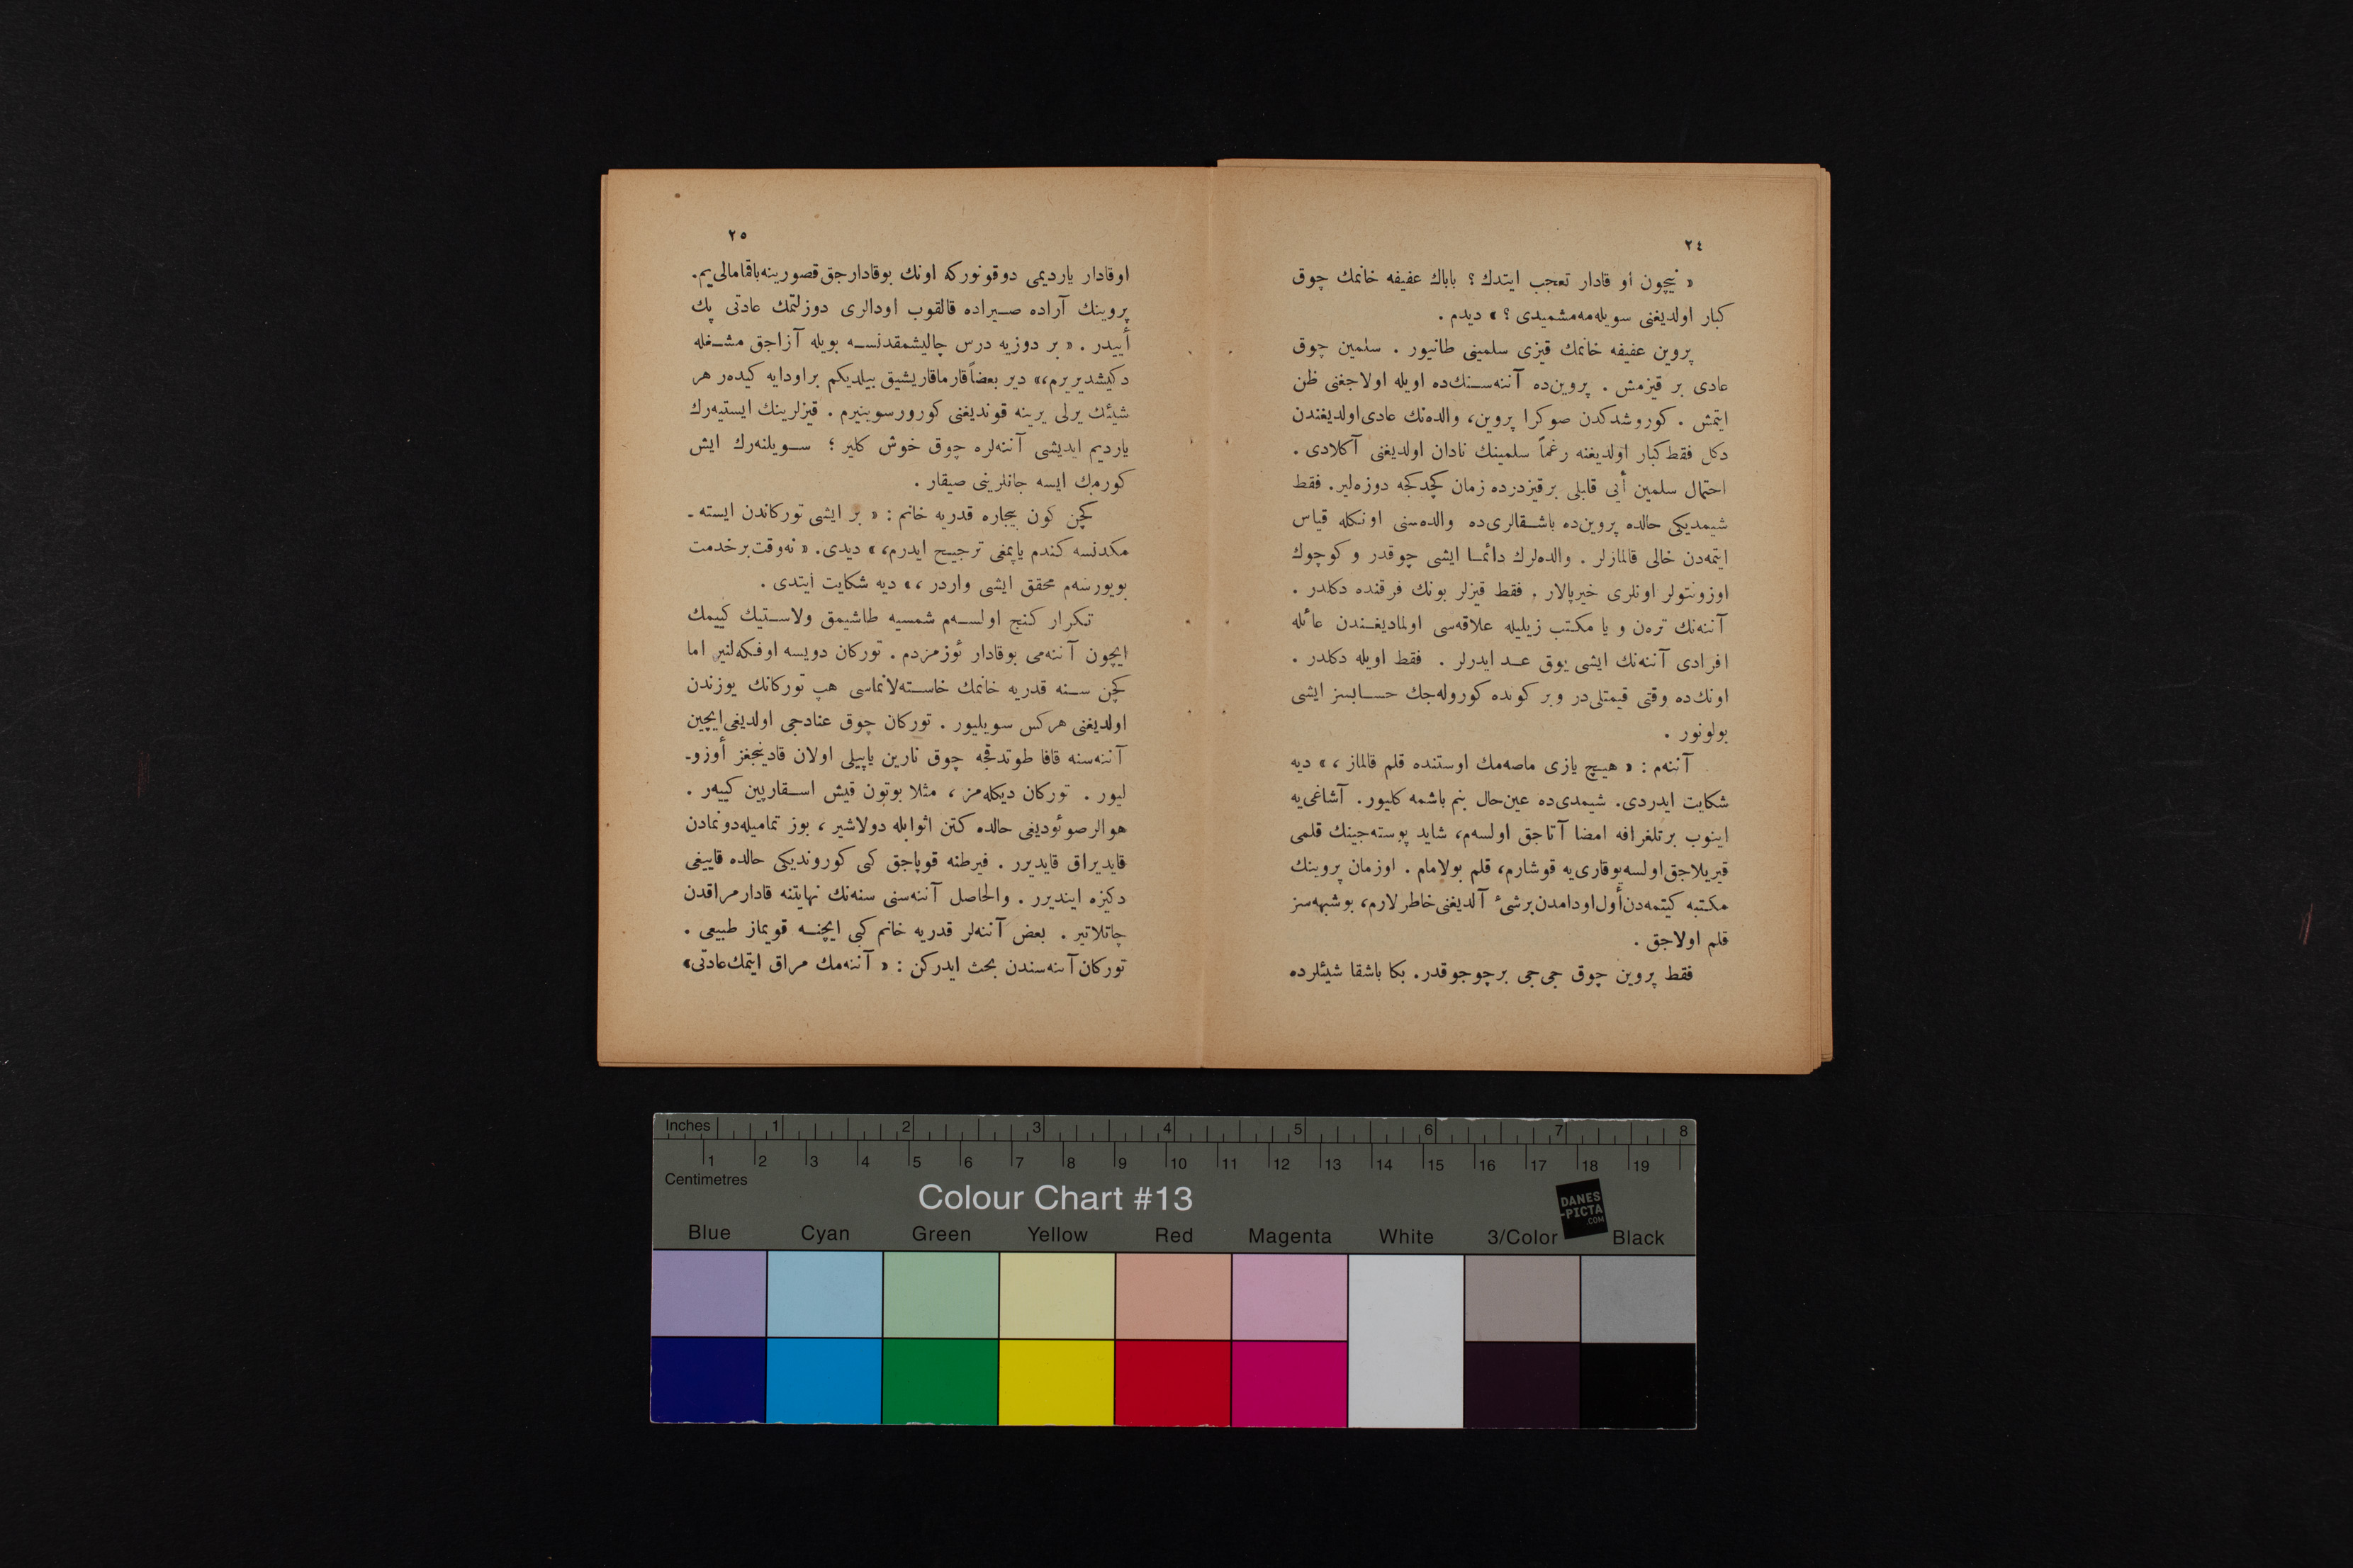 ٢٤
« نيچون او قادار تعجب ايتدك ؟ باباك عفيفه خانمك چوق
كبار اولديغنى سويله‌مه‌مشميدى ؟ » ديدم .
پروين عفيفه خانمك قيزى سلمينى طانيور . سلمين چوق
عادى بر قيزمش . پروين‌ده آننه‌سنك‌ده اويله اولاجغنى ظن
ايتمش . كوروشدكدن صوكرا پروين، والده‌نك عادى اولديغندن
دكل فقط كبار اولديغنه رغماً سلمينك نادان اولديغنى آكلادى .
احتمال سلمين أيى قابلى برقيزدرده زمان كچدكجه دوزه‌لير. فقط
شيمديكى حالده پروين‌ده باشقالرى‌ده والده‌سنى اونكله قياس
ايتمه‌دن خالى قالمازلر . والده‌لرك دائما ايشى چوقدر و كوچوك
اوزونتولر اونلرى خيرپالار . فقط قيزلر بونك فرقنده دكلدر .
آننه‌نك ترەن و يا مكتب زيليله علاقه‌سى اولماديغندن عائله
افرادى آننه‌نك ايشى يوق عد ايدرلر . فقط اويله دكلدر .
اونك‌ده وقتى قيمتلى‌در وبر كونده كوروله‌جك حسابسز ايشى
بولونور .
آننه‌م : « هيچ يازى ماصه‌مك اوستنده قلم قالماز ، » ديه
شكايت ايدردى. شيمدى‌ده عين‌حال بنم باشمه كليور. آشاغى‌يه
اينوب برتلغرافه امضا آتاجق اولسه‌م، شايد پوسته‌جينك قلمى
قيريلاجق‌اولسه يوقارى‌يه قوشارم، قلم بولامام . اوزمان پروينك
مكتبه كيتمه‌دن أول‌اودامدن برشىء آلديغنى خاطرلارم، بوشبهه‌سز
قلم اولاجق .
فقط پروين چوق جى‌جى برچوجوقدر. بكا باشقا شيئلرده
٢٥
اوقادار يارديمى دوقونوركه اونك بوقادارجق قصورينه باقمامالى‌يم.
پروينك آراده صيراده قالقوب اودالرى دوزلتمك عادتى پك
أييدر . « بر دوزيه درس چاليشمقدنسه بويله آزاجق مشغله
دكيشديريرم،» دير بعضاً قارماقاريشيق بيلديكم براودايه كيده‌ر هر
شيئك يرلى يرينه قونديغنى كورورسوينيرم . قيزلرينك ايستيه‌رك
يارديم ايديشى آننه‌لره چوق خوش كلير ؛ سويلنه‌رك ايش
كورمك ايسه جانلرينى صيقار .
كچن كون بيچاره قدريه خانم : « بر ايشى توركاندن ايسته ـ
مكدنسه كندم ياپمغى ترجيح ايدرم، » ديدى. « نه‌وقت برخدمت
بويورسه‌م محقق ايشى واردر ،» ديه شكايت ايتدى .
تكرار كنج اولسه‌م شمسيه طاشيمق ولاستيك كييمك
ايچون آننه‌مى بوقادار ئوزمزدم . توركان دويسه اوفكه‌لنير اما
كچن سنه قدريه خانمك خاسته‌لانماسى هپ توركانك يوزندن
اولديغنى هركس سويليور . توركان چوق عنادجى اولديغى‌ايچين
آننه‌سنه قافا طوتدقجه چوق نارين ياپيلى اولان قادينجغز أوزو-
ليور . توركان ديكله‌مز ، مثلا بوتون قيش اسقارپين كييه‌ر .
هوالر صوئوديغى حالده كتن اثوابله دولاشير ، بوز تماميله‌دونمادن
قايديراق قايدير . فيرطنه قوپاجق كبى كورونديكى حالده قاييغى
دكيزه اينديرر . والحاصل آننه‌سنى سنه‌نك نهايتنه قادار مراقدن
چاتلاتير . بعض آننه‌لر قدريه خانم كبى ايچنه قويماز طبيعى .
توركان آننه‌سندن بحث ايدركن : « آننه‌مك مراق ايتمك عادتى»
Inches 1 2 3 4 5 6 7 8
1 2 3 4 5 6 7 8 9 10 11 12 13 14 15 16 17 18 19
Centimetres
Colour Chart #13
DANES
-PICTA
.COM
Blue Cyan Green Yellow Red Magenta White 3/Color Black